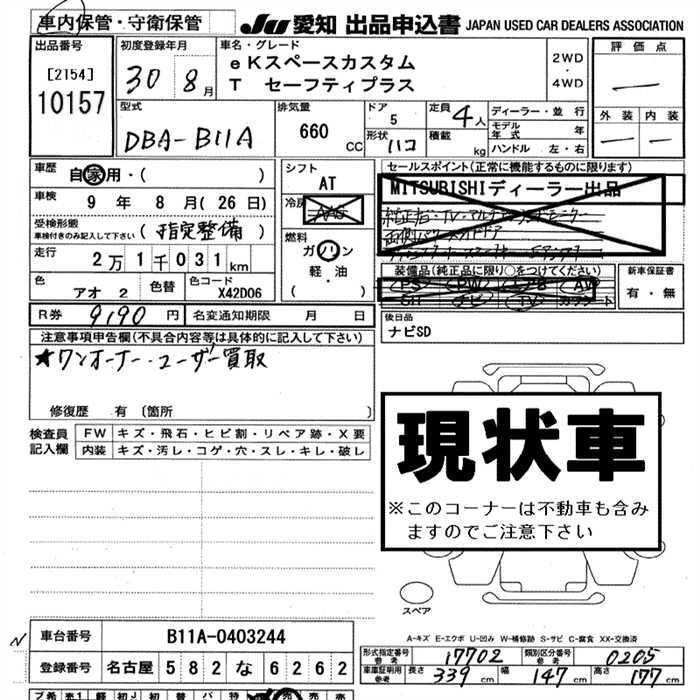 車内保管・守衛保管
JU 愛知 出品申込書 JAPAN USED CAR DEALERS ASSOCIATION
出品番号
[2154]
10157
初度登録年月
30 8月
車名・グレード
eKスペースカスタム
T セーフティプラス
2WD
・
4WD
評価点
外装 内装
型式
DBA-B11A
排気量
660
CC
ドア
5
形状
ハコ
定員
4人
積載
kg
ディーラー・並行
モデル年式 年
ハンドル 左・右
車歴
自家用・( )
車検
9年 8月(26日)
受検形態
車検付きのみ記入して下さい
(指定整備)
走行
2万1千031km
色
アオ 2
色替
色コード
X42D06
シフト
AT
冷房
AAC
燃料
ガソリン
軽・油
( )
セールスポイント(正常に機能するものに限ります)
MITSUBISHIディーラー出品
装備品(純正品に限り○をつけてください)
PS PW AW
SR ナビ TV カワシート
新車保証書
有・無
後日品
ナビSD
R券 9190円
名変通知期限 月 日
注意事項申告欄(不具合内容等は具体的に記入して下さい)
★ワンオーナー・ユーザー買取
修復歴 有〔箇所 〕
検査員記入欄
FW キズ・飛石・ヒビ割・リペア跡・X要
内装 キズ・汚レ・コゲ・穴・スレ・キレ・破レ
現状車
※このコーナーは不動車も含み
ますのでご注意下さい
スペア
A-キズ E-エクボ U-凹み W-補修跡 S-サビ C-腐食 XX-交換済
N
車台番号 B11A-0403244
登録番号 名古屋 582 な 6262
形式指定番号
参考
17702
類別区分番号
参考
0205
車庫証明用
参考
長さ 339cm
幅 147cm
高さ 177cm